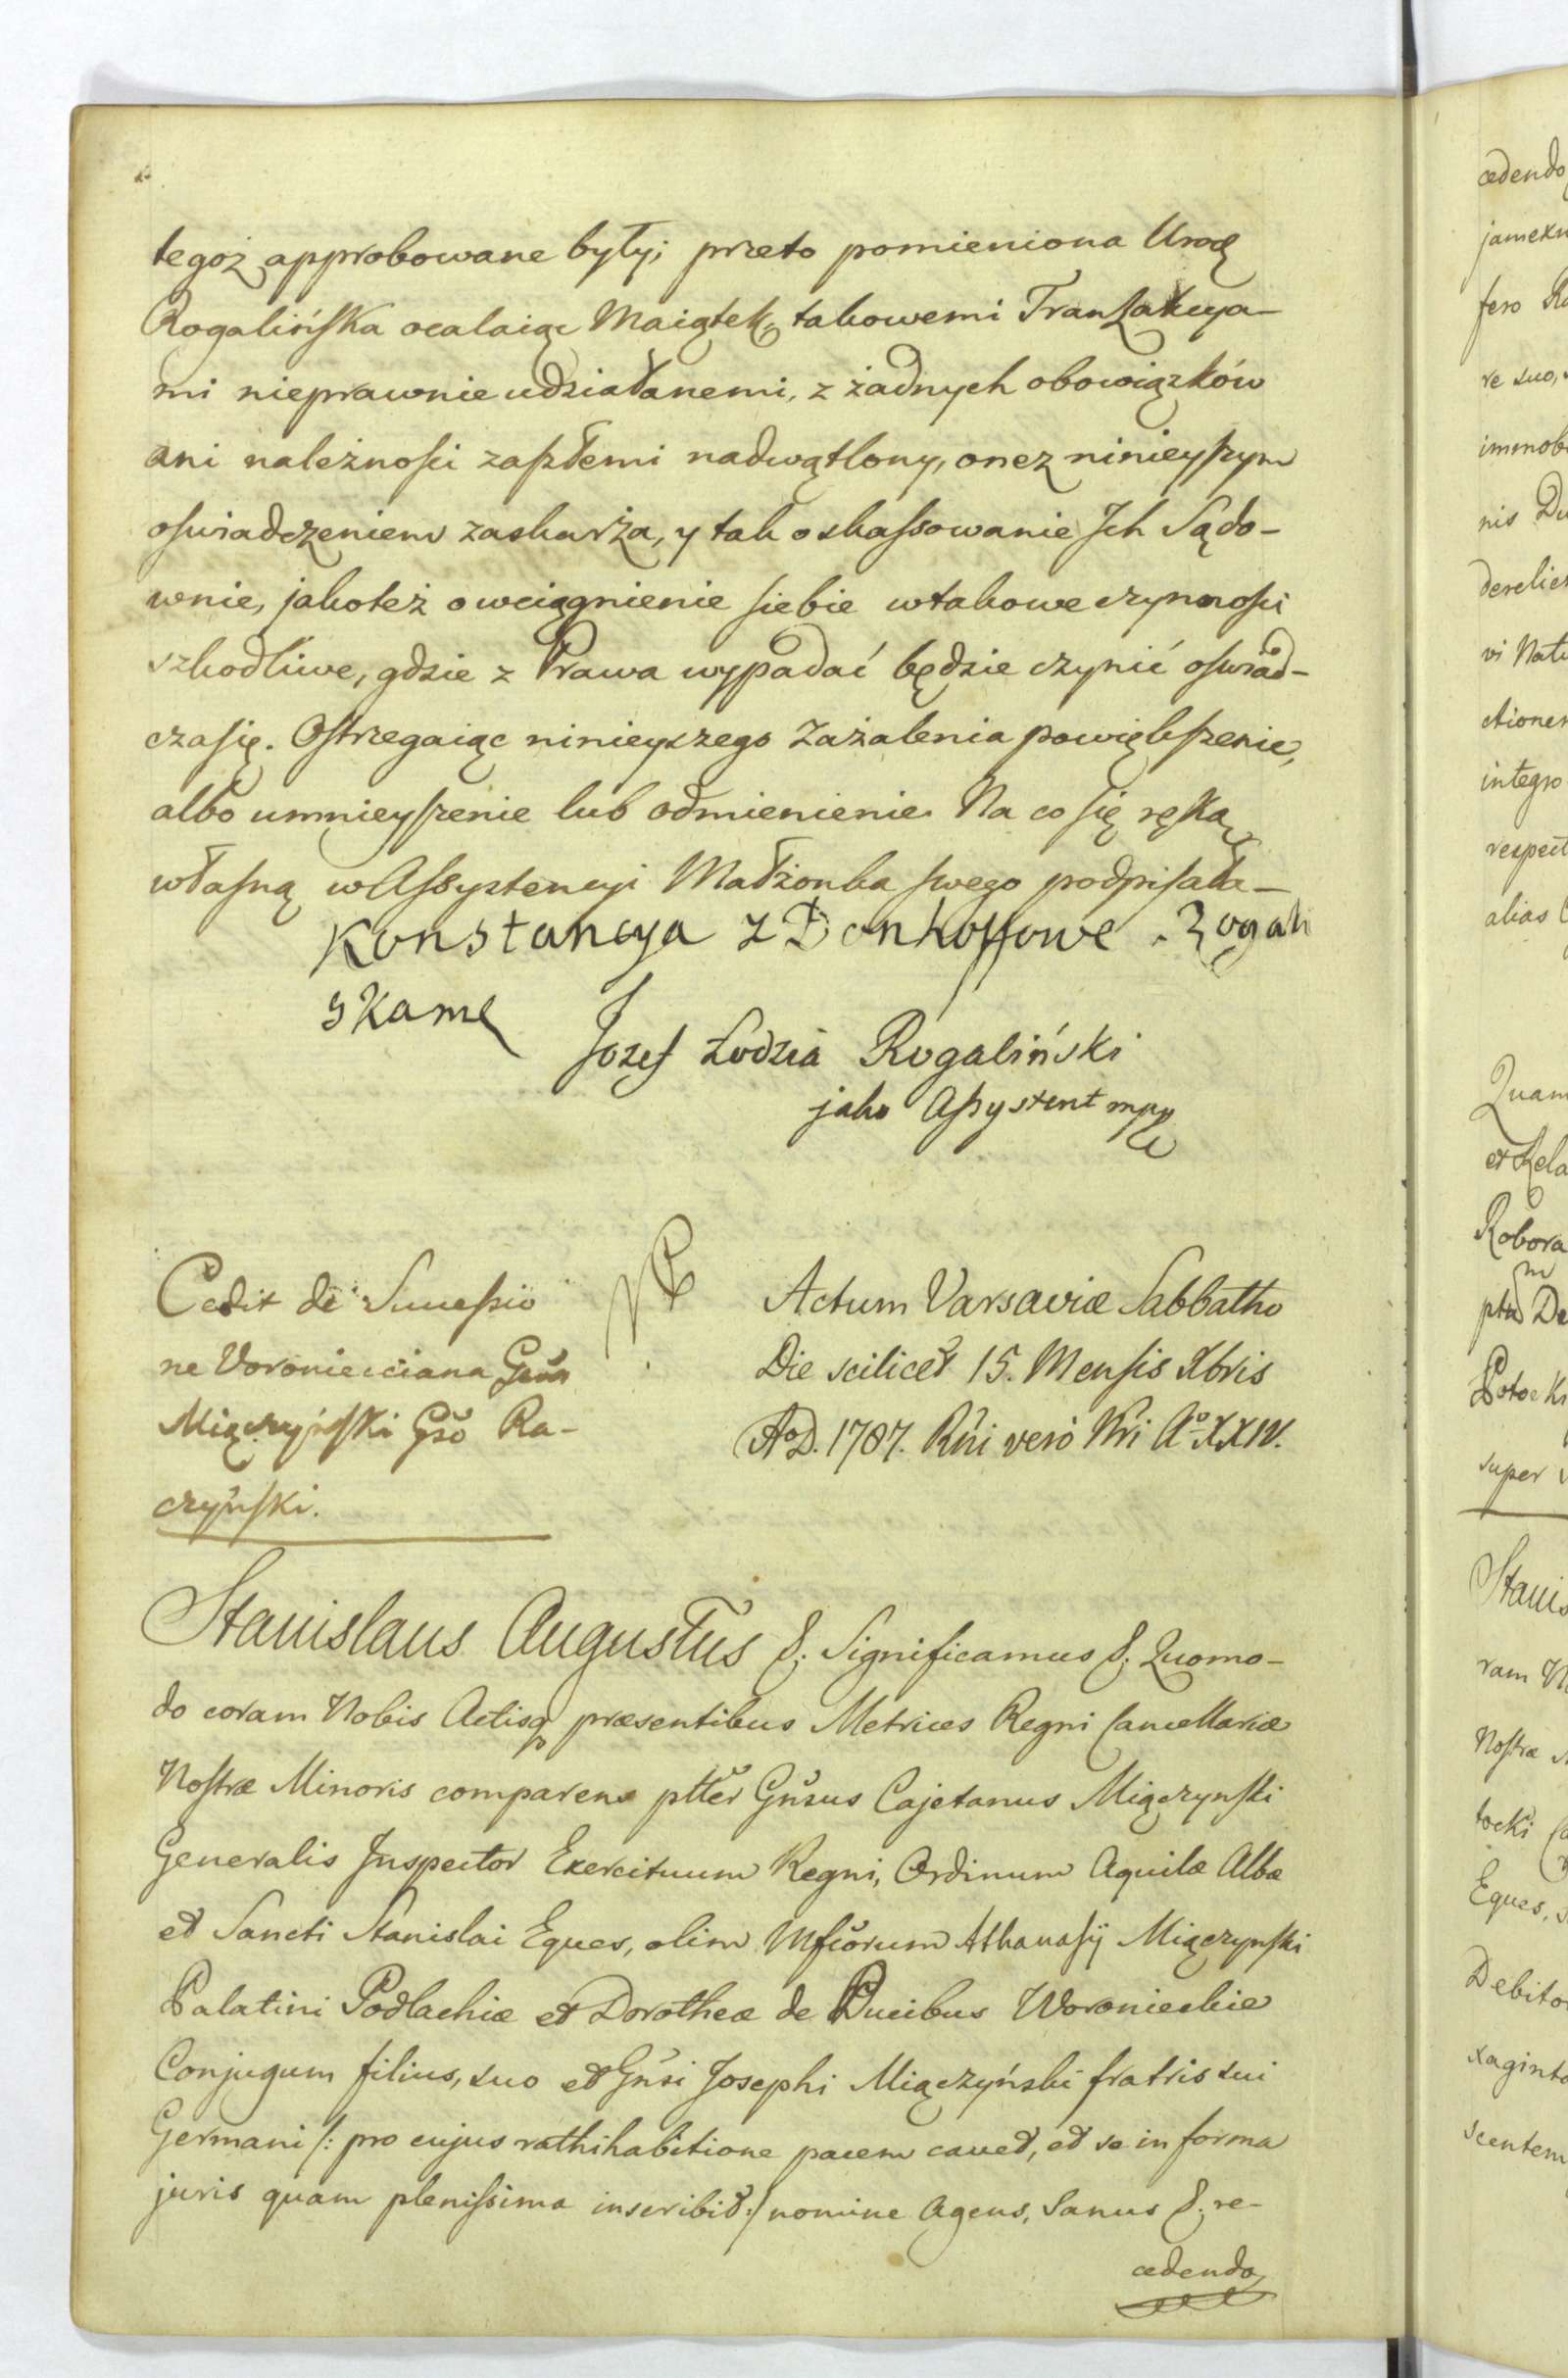 tegoż approbowane były; przeto pomieniona Urodz
Rogalińska ocalaiąc Maiątek, takowemi Tranzakcya-
mi nieprawnie udziałanemi, z żadnych obowiązków
ani należnosci zaszłemi nadwątlony, onez ninieyszym
oswiadczeniem zaskarża, y tak o skassowanie Ich Sądo-
wnie, jakoteż o wciągnienie siebie w takowe czynnosci
szkodliwe, gdzie z Prawa wypadać będzie czynić oswiad-
cza się. Ostrzegaiąc ninieyszego Zażalenia powiększenie,
albo umnieyszenie lub odmienienie. Na co się ręką
własną w Assystencyi Małżonka swego podpisała—
Konstancya z Denhoffowe Rogali
skame
Jozef Lodzia Rogaliński
jako Assystent mpp
Cedit de Successio
ne Voroniecciana Gsus
Miączyński Gso Ra-
czyński.
Actum Varsaviæ Sabbatho
Die scilicet 15. Mensis Xbris
AoD. 1787. Rni verò Nri Ao XXIV.
Stanislaus Augustus &. Significamus &. Quomo-
do coram Nobis Actisq præsentibus Metrices Regni Cancellariæ
Nostræ Minoris comparens ptter Gnsus Cajetanus Miączynski
Generalis Inspector Exercituum Regni, Ordinum Aquilæ Albæ
et Sancti Stanislai Eques, olim Mfcorum Athanasij Miączynski
Palatini Podlachiæ et Dorotheæ de Ducibus Woronieckie
Conjugum filius, suo et Gnsi Josephi Miączyński fratris sui
Germani /: pro cujus rathihabitione pacem cavet, et se in forma
juris quam plenissima inscribit :/ nomine Agens, Sanus &. re-
cedendo
cedendo
fero
re suo,
integro
alias
Quam
Robora
Potocki
super
Stanis
ram
Nostræ
tocki
Eques,
Debito
xaginta
scentem